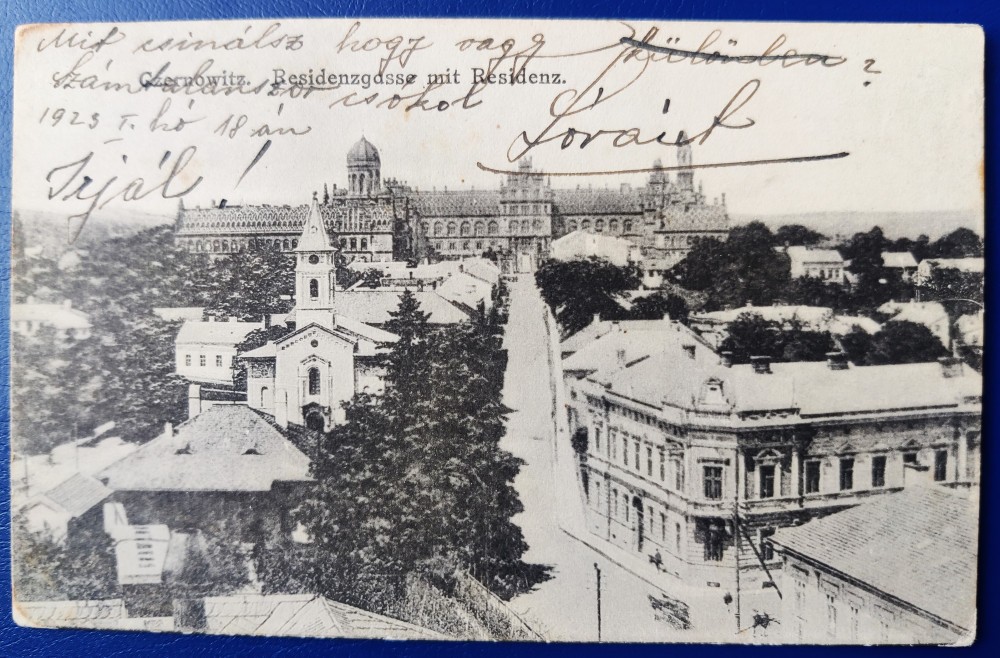 Mit csinálsz hogy vagy különben?
Czernowitz. Residenzgasse mit Residenz.
Számtalanszor csókol
1923 I. hó 18 án Lóránt
Irjál!